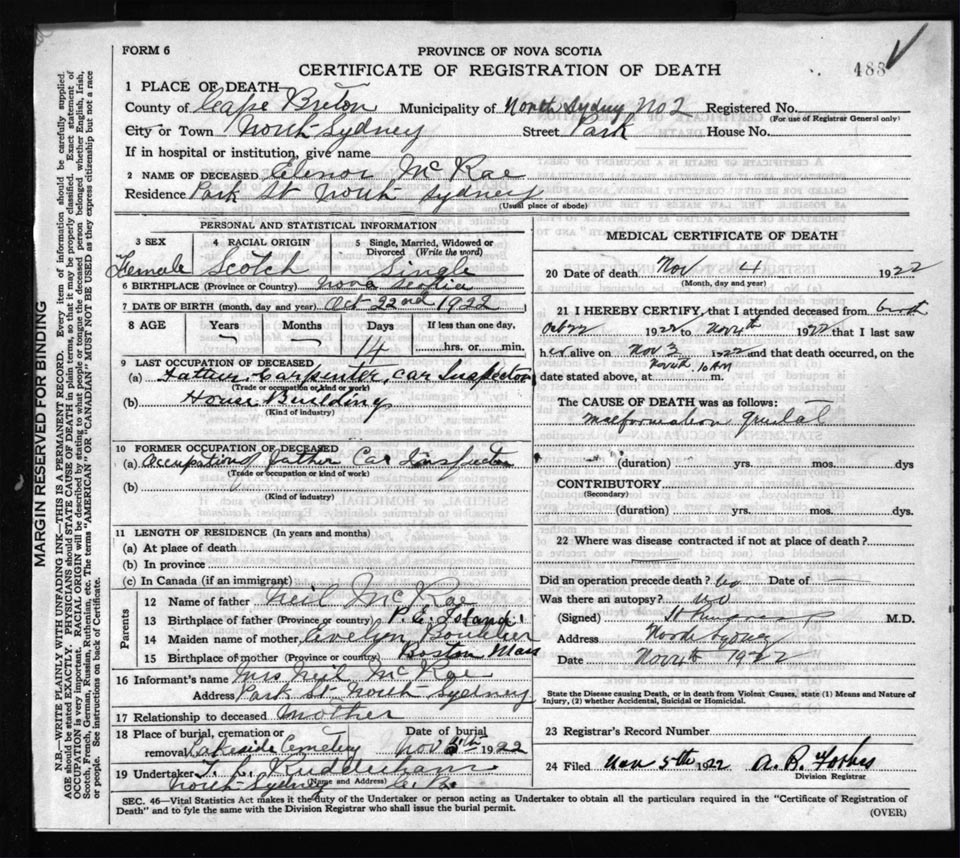 FORM 6
PROVINCE OF NOVA SCOTIA
CERTIFICATE OF REGISTRATION OF DEATH
488
1 PLACE OF DEATH
County of Cape Breton Municipality of North Sydney No 2 Registered No.
(For use of Registrar General only)
City or Town North Sydney Street Park House No.
If in hospital or institution, give name
2 NAME OF DECEASED Elenor McRae
Residence Park St North Sydney
(Usual place of abode)
PERSONAL AND STATISTICAL INFORMATION
3 SEX 4 RACIAL ORIGIN 5 Single, Married, Widowed or Divorced (Write the word)
Female Scotch Single
6 BIRTHPLACE (Province or Country) Nova Scotia
7 DATE OF BIRTH (month, day and year) Oct 22nd 1922
8 AGE Years Months Days If less than one day,
— — 14 hrs. or min.
9 LAST OCCUPATION OF DECEASED
(a) Father, Carpenter, Car Inspector
(Trade or occupation or kind of work)
(b) House Building
(Kind of industry)
10 FORMER OCCUPATION OF DECEASED
(a) Occupation of father Car Inspector
(Trade or occupation or kind of work)
(b)
(Kind of industry)
11 LENGTH OF RESIDENCE (In years and months)
(a) At place of death
(b) In province
(c) In Canada (if an immigrant)
Parents
12 Name of father Neil McRae
13 Birthplace of father (Province or country) P. E. Island
14 Maiden name of mother Evelyn Boutilier
15 Birthplace of mother (Province or country) Boston Mass
16 Informant's name Mrs Neil McRae
Address Park St North Sydney
17 Relationship to deceased Mother
18 Place of burial, cremation or removal Lakeside Cemetery Date of burial Nov 5th 1922
19 Undertaker Rudderham
(Name and Address)
North Sydney C. B.
MEDICAL CERTIFICATE OF DEATH
20 Date of death Nov 4 1922
(Month, day and year)
21 I HEREBY CERTIFY, that I attended deceased from birth
Oct 22 1922 to Nov 4th 1922 that I last saw
her alive on Nov 3 1922 and that death occurred, on the
date stated above, at Nov 4th 10 AM m.
The CAUSE OF DEATH was as follows:
malformation
(duration) yrs. mos. dys
CONTRIBUTORY
(Secondary)
(duration) yrs. mos. dys.
22 Where was disease contracted if not at place of death?
Did an operation precede death? No Date of —
Was there an autopsy? no
(Signed) M.D.
Address North Sydney
Date Nov 4th 1922
State the Disease causing Death, or in death from Violent Causes, state (1) Means and Nature of Injury, (2) whether Accidental, Suicidal or Homicidal.
23 Registrar's Record Number
24 Filed Nov 5th 1922 A. B. Forbes
Division Registrar
SEC. 46—Vital Statistics Act makes it the duty of the Undertaker or person acting as Undertaker to obtain all the particulars required in the "Certificate of Registration of
Death" and to fyle the same with the Division Registrar who shall issue the burial permit.
(OVER)
MARGIN RESERVED FOR BINDING
N.B.—WRITE PLAINLY WITH UNFADING INK—THIS IS A PERMANENT RECORD. Every item of information should be carefully supplied.
AGE should be stated EXACTLY. PHYSICIANS should STATE CAUSE OF DEATH in plain terms, so that it may be properly classified. Exact statement of
OCCUPATION is very important. RACIAL ORIGIN will be described by stating to what people or tongue the deceased person belonged whether English, Irish,
Scotch, French, German, Russian, Ruthenian, etc. The terms "AMERICAN" OR "CANADIAN" MUST NOT BE USED as they express citizenship but not a race
or people. See instructions on back of Certificate.